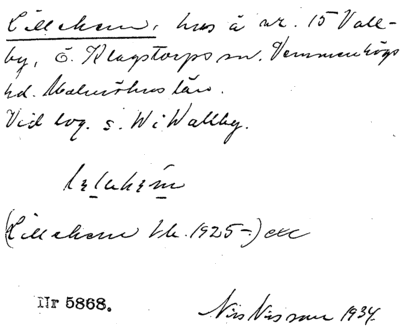 Lillehem, hus å nr. 15 Vall-
by, Ö. Klagstorps sn. Vemmenhögs
hd. Malmöhus län.
Vid lvg. s. Wi Wallby.
(Lillehem tk. 1925-) etc
Nr 5868.
Nils Nilsson 1934.